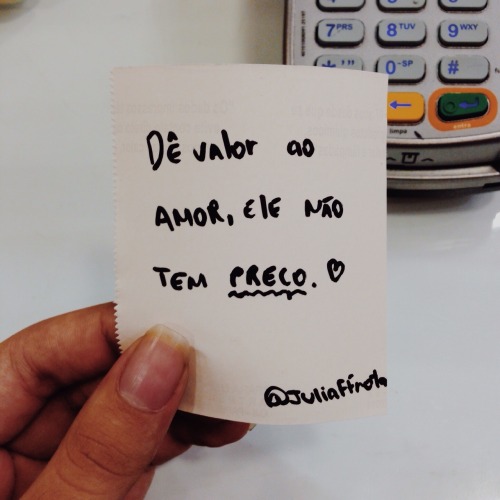 7PRS
8TUV
9WXY
*,'"
0-SP
#
limpa
entra
DÊ valor ao
AMOR, ElE NÃO
TEM PREÇO. ♡